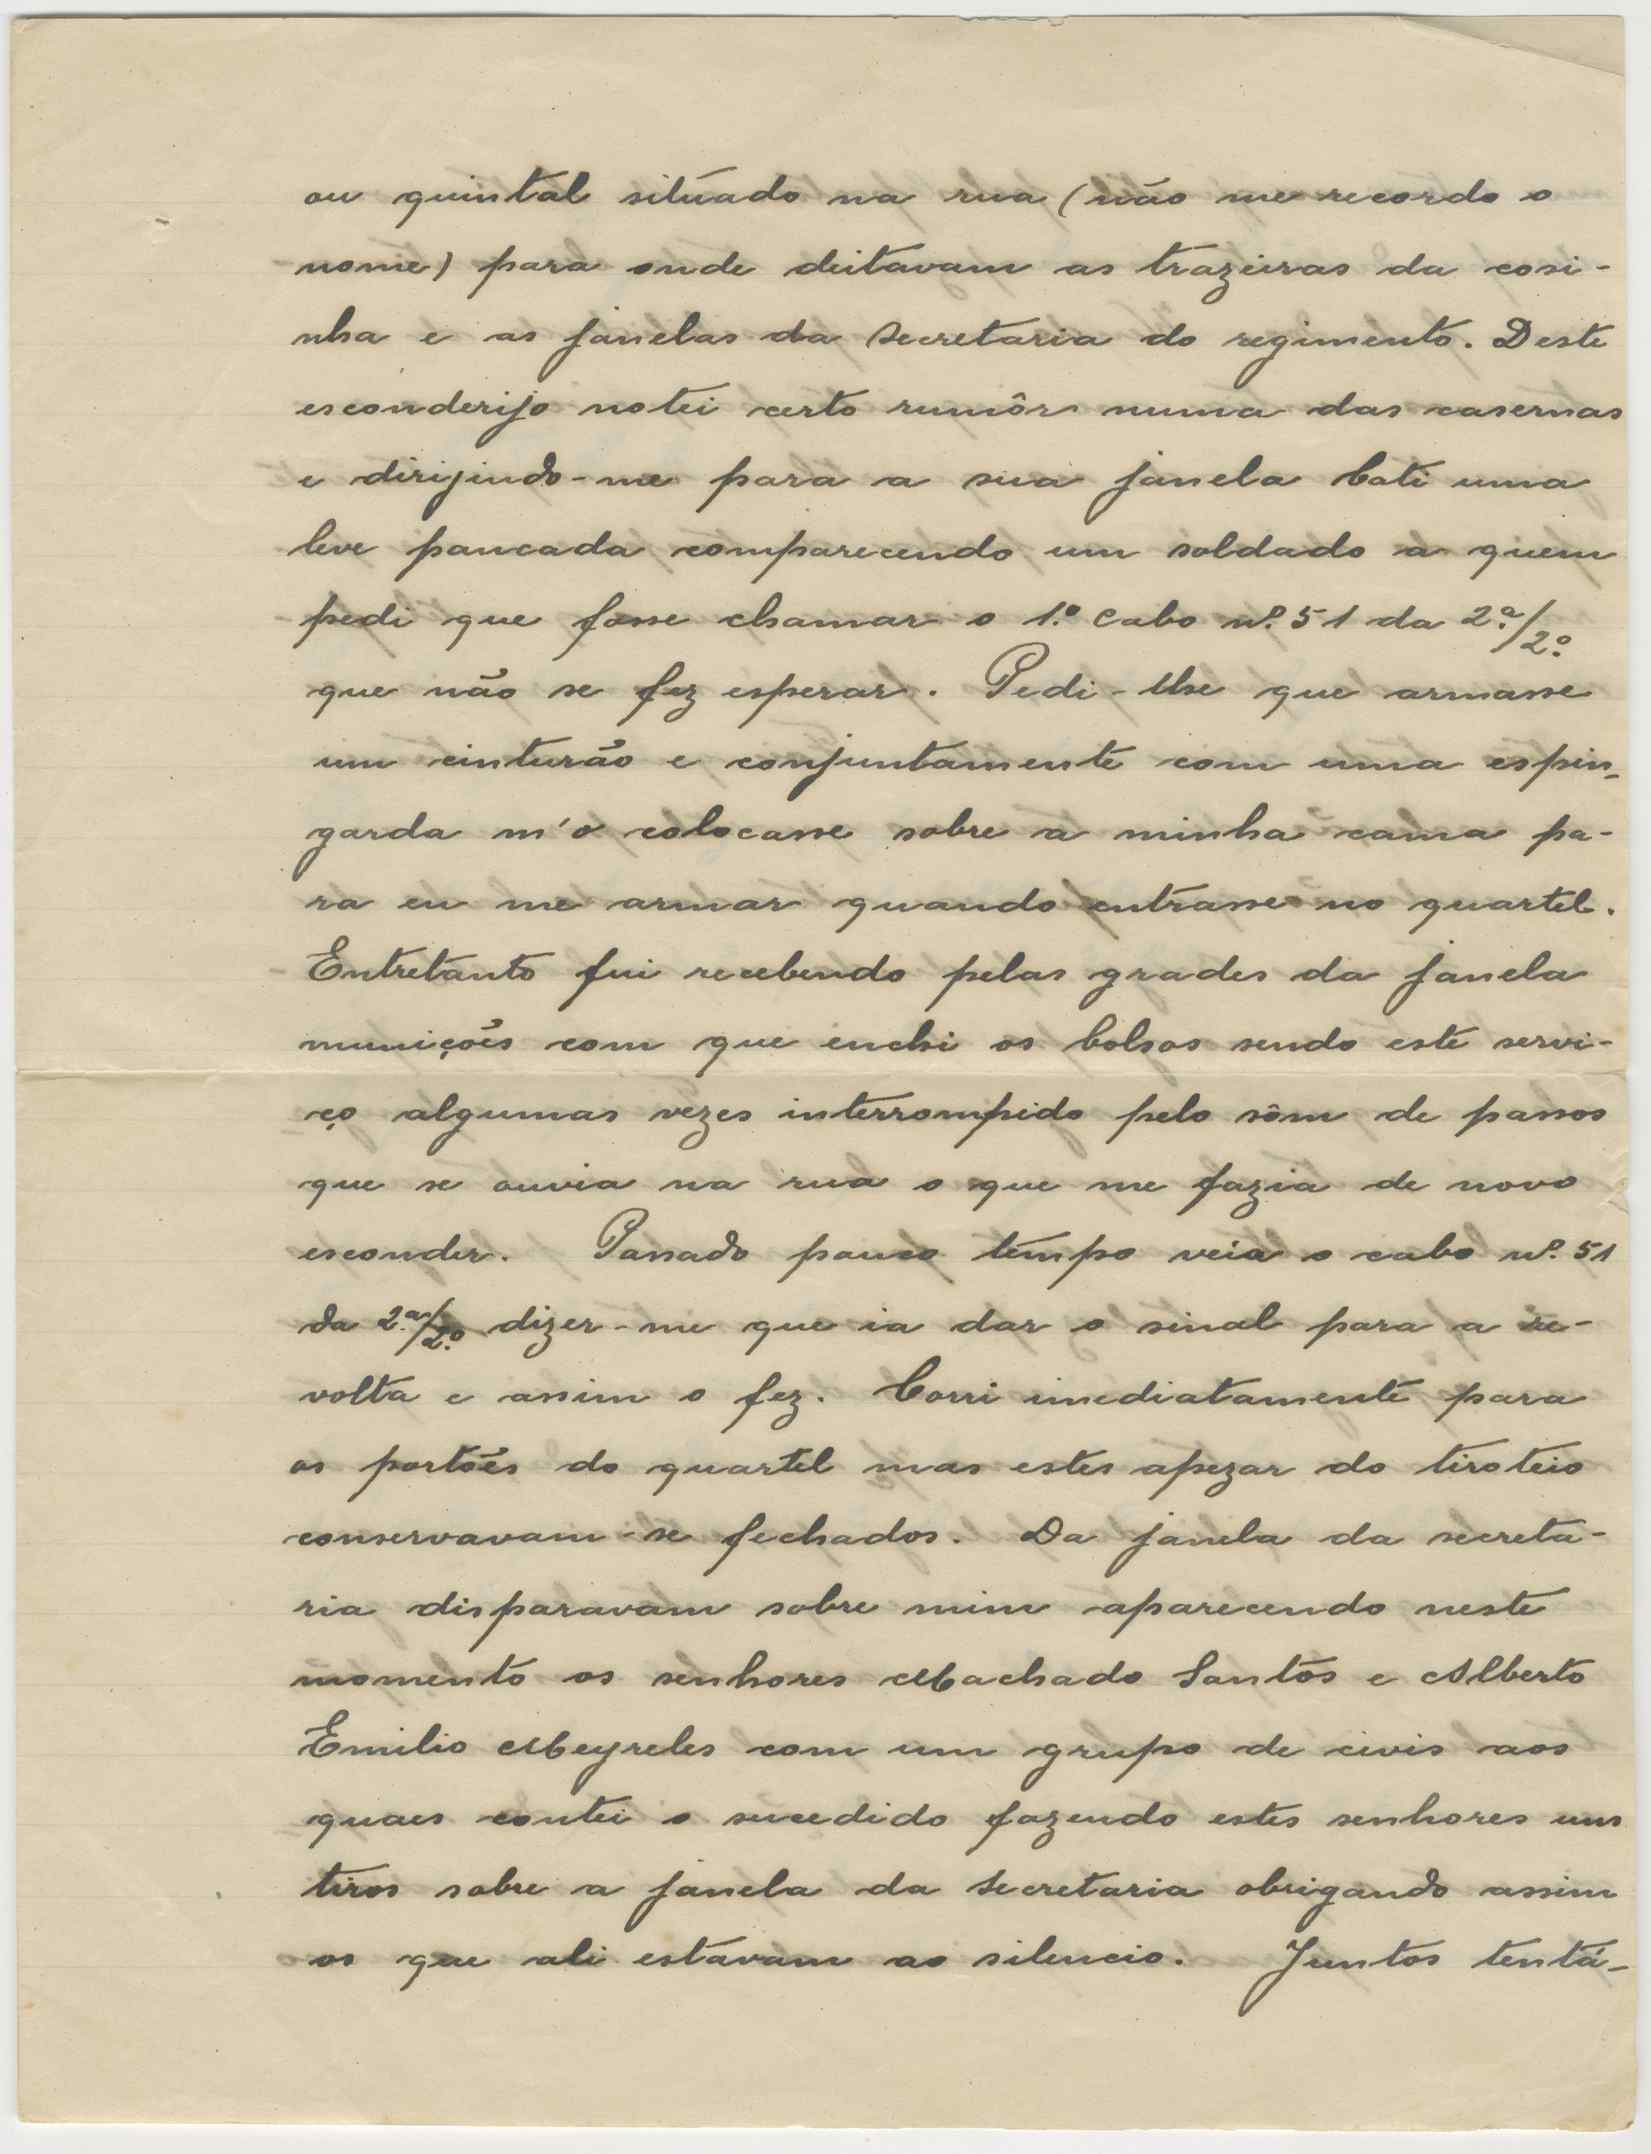 ou quintal situado na rua (não me recordo o
nome) para onde deitavam as trazeiras da cosi-
nha e as janelas da Secretaria do regimento. Deste
esconderijo notei certo rumôr numa das casernas
e dirijindo-me para a sua janela bati uma
leve pancada comparecendo um soldado a quem
pedi que fosse chamar o 1.º Cabo nº. 51 da 2.ª/2.º
que não se fez esperar. Pedi-lhe que armasse
um cinturão e conjuntamente com uma espin-
garda m'o colocasse sobre a minha cama pa-
ra eu me armar quando entrasse no quartel.
Entretanto fui recebendo pelas grades da janela
munições com que enchi os bolsos sendo este servi-
ço algumas vezes interrompido pelo sôm de passos
que se ouvia na rua o que me fazia de novo
esconder. Passado pouco tempo veio o cabo nº. 51
da 2.ª/2.º dizer-me que ia dar o sinal para a re-
volta e assim o fez. Corri imediatamente para
os portões do quartel mas estes apezar do tiroteio
conservavam-se fechados. Da janela da secreta-
ria disparavam sobre mim aparecendo neste
momento os senhores Machado Santos e Alberto
Emilio Meyreles com um grupo de civis aos
quaes contei o sucedido fazendo estes senhores uns
tiros sobre a janela da Secretaria obrigando assim
os que ali estavam ao silencio. Juntos tentá-